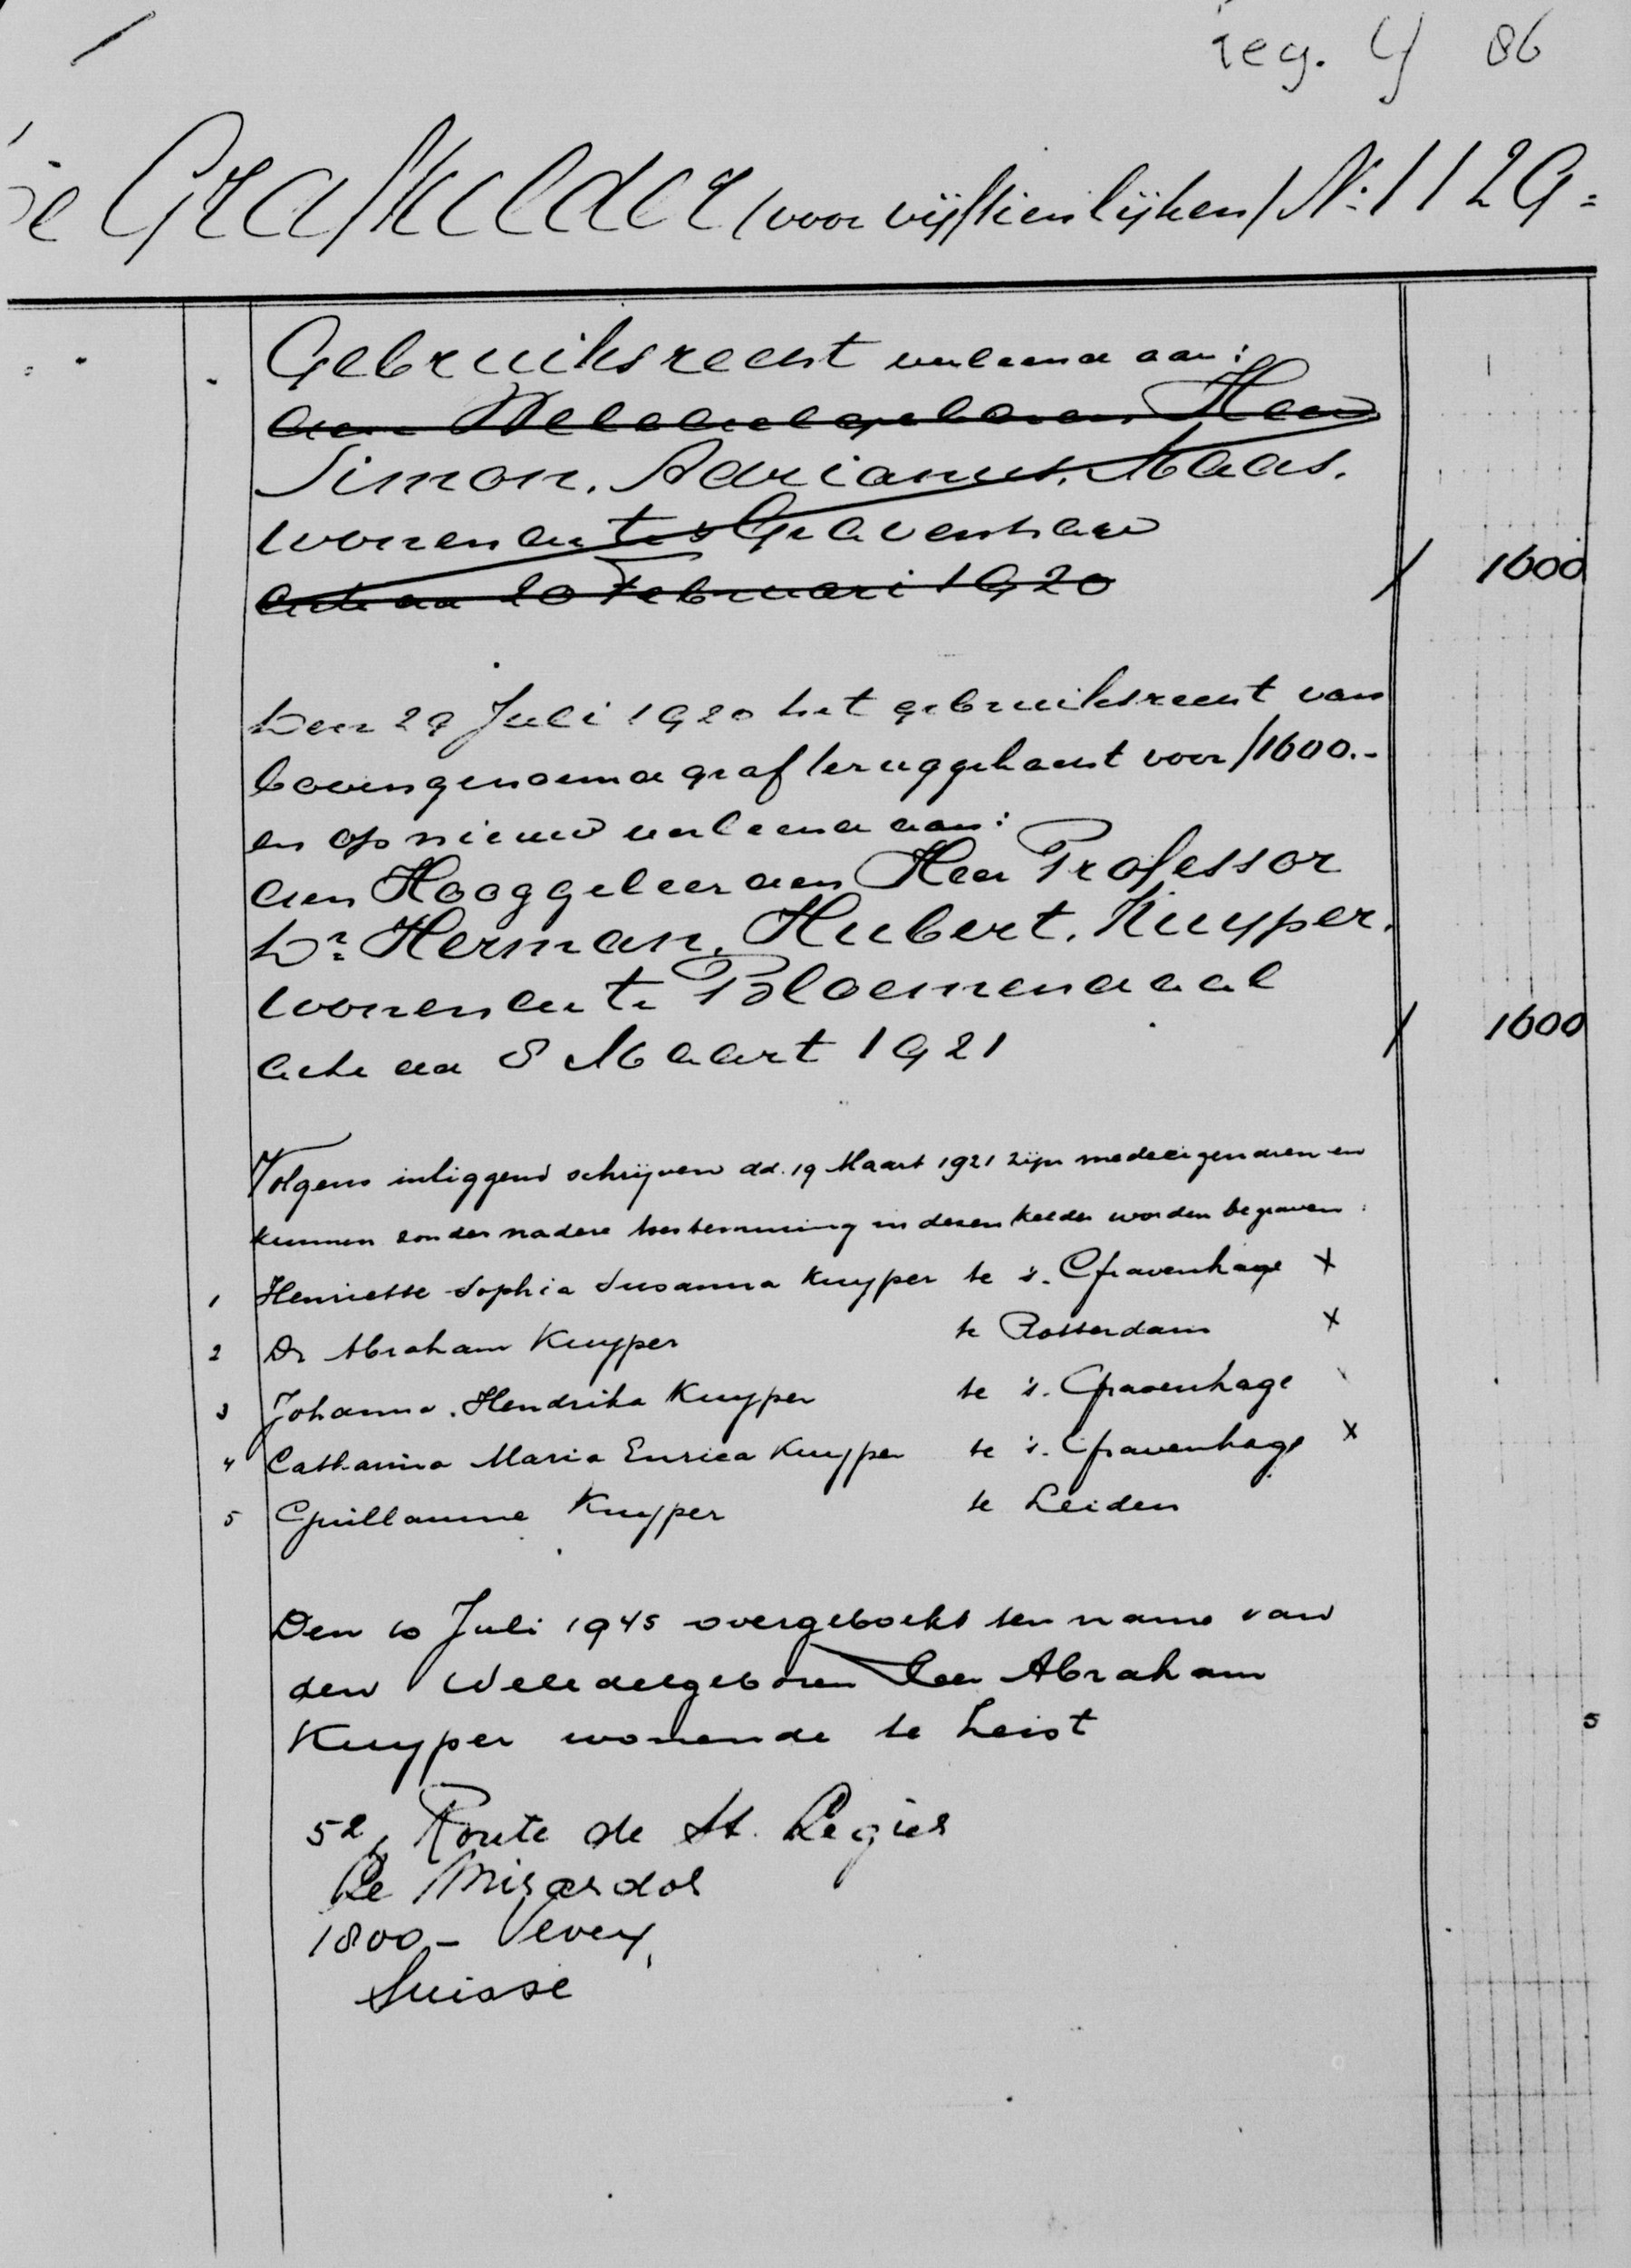 reg. 4 86
Grafkelder (voor vijftien lijken) No. 1129=
Gebruiksrecht verleend aan:
den Weledelgeboren Heer
Simon. Adrianus. Maas.
wonende te s Gravenhage
acte dd 20 Februari 1920
ƒ 1600
Den 29 Juli 1920 het gebruiksrecht van
bovengenoemd graf teruggekocht voor ƒ1600.-
en op nieuw verleend aan:
den Hooggeleerden Heer Professor
Dr Herman. Hubert. Kuyper.
wonende te Bloemendaal
acte dd 8 Maart 1921
ƒ 1600
Volgens inliggend schrijven dd. 19 Maart 1921 zijn medeeigenaren en
kunnen zonder nadere toestemming in dezen kelder worden begraven:
1 Henriette Sophia Susanna Kuyper te 's. Gravenhage X
2 Dr Abraham Kuyper te Rotterdam X
3 Johanna. Hendrika Kuyper te 's. Gravenhage
4 Catharina Maria Eunica Kuyper te 's. Gravenhage X
5 Guillaume Kuyper te Leiden
Den 10 Juli 1945 overgeboekt ten name van
den Weledelgeboren Heer Abraham
Kuyper wonende te Zeist
5
52, Route de St. Legier
Le Mirador
1800 - Vevey,
Suisse